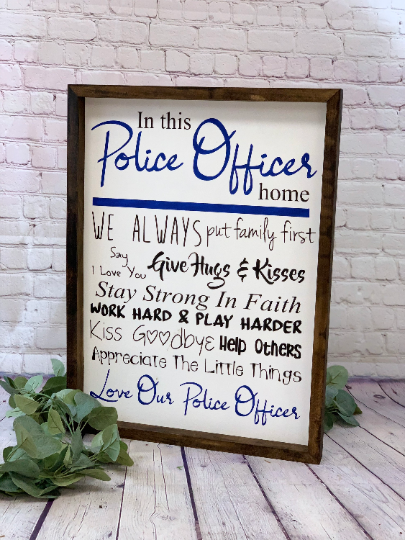 In this
Police Officer
home
WE ALWAYS put family first
Say
I Love You Give Hugs & Kisses
Stay Strong In Faith
WORK HARD & PLAY HARDER
Kiss Goodbye Help Others
Appreciate The Little Things
Love Our Police Officer